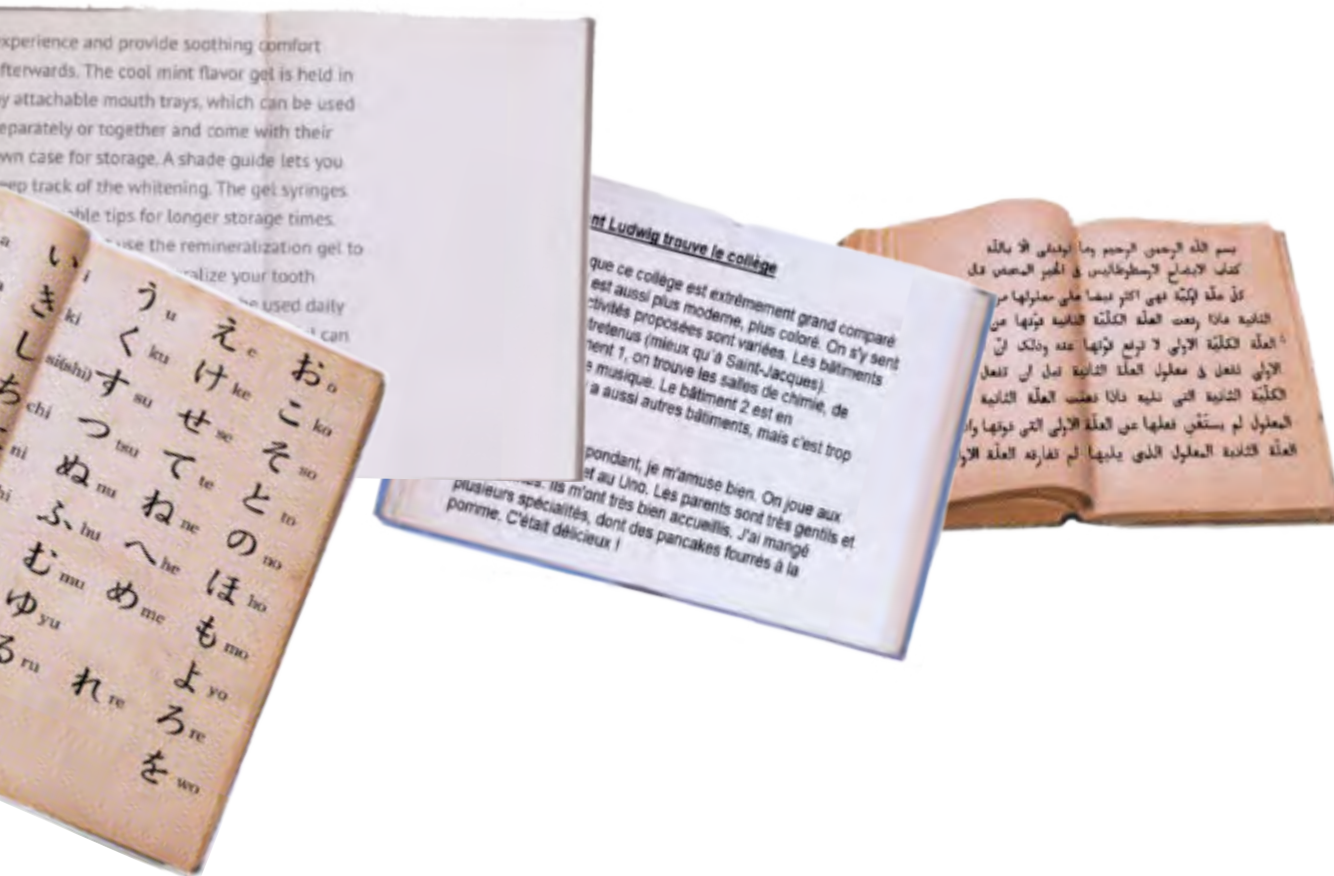 experience and provide soothing comfort
afterwards. The cool mint flavor gel is held in
by attachable mouth trays, which can be used
separately or together and come with their
own case for storage. A shade guide lets you
keep track of the whitening. The gel syringes
tips for longer storage times.
use the remineralization gel to
your tooth
be used daily
can
い i う u え e お o
き ki く ku け ke こ ko
し si(shi) す su せ se そ so
ち chi つ tsu て te と to
ni ぬ nu ね ne の no
hi ふ hu へ he ほ ho
む mu め me も mo
ゆ yu よ yo
る ru れ re ろ re
を wo
nt Ludwig trouve le collège
que ce collège est extrêmement grand comparé
est aussi plus moderne, plus coloré. On s'y sent
ctivités proposées sont variées. Les bâtiments
tretenus (mieux qu'à Saint-Jacques).
ment 1, on trouve les salles de chimie, de
e musique. Le bâtiment 2 est en
a aussi autres bâtiments, mais c'est trop
pondant, je m'amuse bien. On joue aux
et au Uno. Les parents sont très gentils et
Ils m'ont très bien accueillis. J'ai mangé
plusieurs spécialités, dont des pancakes fourrés à la
pomme. C'était délicieux !
بسم الله الرحمن الرحيم وما توفيقى الا بالله
كتاب الايضاح لارسطوطاليس فى الخير المحض قال
كل علّة اوّليّة فهى اكثر فيضا على معلولها من
الثانية فاذا رفعت العلّة الكلّيّة الثانية قوّتها عن
العلّة الكلّيّة الاولى لا ترفع قوّتها عنه وذلك انّ
الاولى تفعل فى معلول العلّة الثانية قبل ان تفعل
الكلّيّة الثانية التى تليه فاذا فعلت العلّة الثانية
المعلول لم يستغن فعلها عن العلّة الاولى التى فوقها واذ
العلّة الثانية المعلول الذى يليها لم تفارقه العلّة الاو